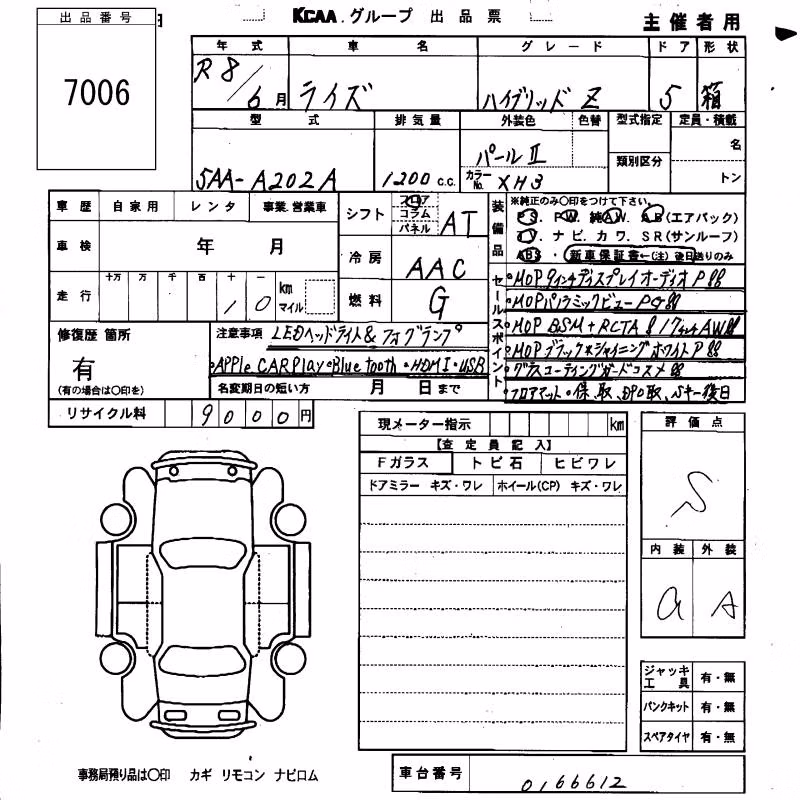 KCAA グループ 出品票
主催者用
出品番号
7006
年式 車名 グレード ドア 形状
R8/6月 ライズ ハイブリッド Z 5 箱
型式 排気量 外装色 色替 型式指定 定員・積載
類別区分
名
トン
5AA-A202A 1200 c.c. パールⅡ
カラーNo. XH3
車歴 自家用 レンタ 事業・営業車
車検 年 月
走行 十万 万 千 百 十 一 km マイル
10
シフト フロア コラム パネル AT
冷房 AAC
燃料 G
装備品
※純正のみ○印をつけて下さい。
P.S. P.W. 純A.W. A.B(エアバック)
T.V. ナビ. カワ. S.R(サンルーフ)
ABS ・ 新車保証書←(注)後日送りのみ
セールスポイント
・MOP 9インチディスプレイオーディオ P
・MOPパノラミックビュー PG
・MOP BSM+RCTA 17インチAW
・MOP ブラック×シャイニングホワイトP
・グラスコーティングガードコスメ
・フロアマット・保、取、ナビ取、Sキー後日
修復歴 箇所
有
(有の場合は○印を)
注意事項 LEDヘッドライト& フォグランプ
・Apple CARPlay・Bluetooth・HDMI・USB
名変期日の短い方 月 日まで
リサイクル料 9000円
現メーター指示 km
【査定員記入】
Fガラス トビ石 ヒビワレ
ドアミラー キズ・ワレ ホイール(CP) キズ・ワレ
評価点
S
内装 外装
a A
ジャッキ工具 有・無
パンクキット 有・無
スペアタイヤ 有・無
事務局預り品は○印 カギ リモコン ナビロム
車台番号 0166612